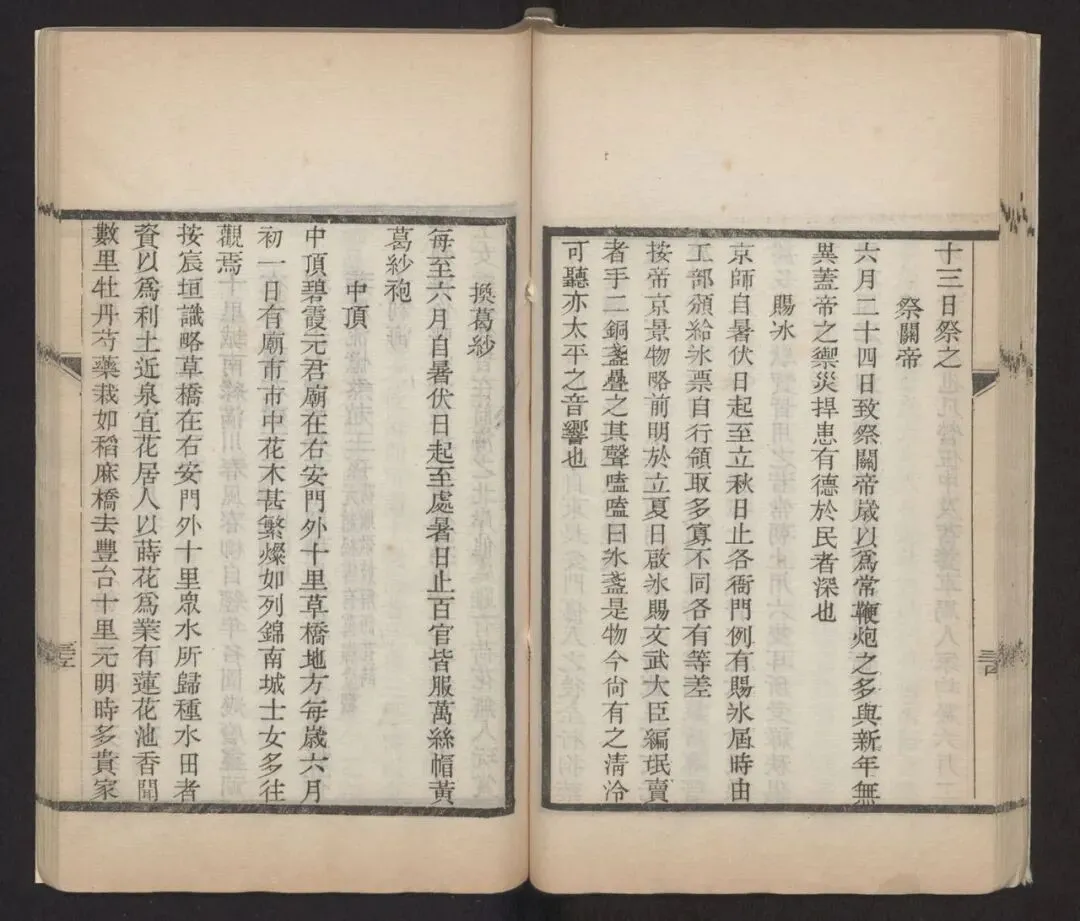 十三日祭之
祭關帝
六月二十四日致祭關帝歲以爲常鞭炮之多與新年無
異蓋帝之禦災捍患有德於民者深也
賜冰
京師自暑伏日起至立秋日止各衙門例有賜冰屆時由
工部頒給冰票自行領取多寡不同各有等差
按帝京景物略前明於立夏日啟冰賜文武大臣編氓賣
者手二銅盞疊之其聲嗑嗑曰冰盞是物今尚有之清泠
可聽亦太平之音響也
三四
換葛紗
每至六月自暑伏日起至處暑日止百官皆服萬絲帽黃
葛紗袍
中頂
中頂碧霞元君廟在右安門外十里草橋地方每歲六月
初一日有廟市市中花木甚繁燦如列錦南城士女多往
觀焉
按宸垣識略草橋在右安門外十里眾水所歸種水田者
資以爲利土近泉宜花居人以蒔花爲業有蓮花池香聞
數里牡丹芍藥栽如稻麻橋去豐台十里元明時多貴家